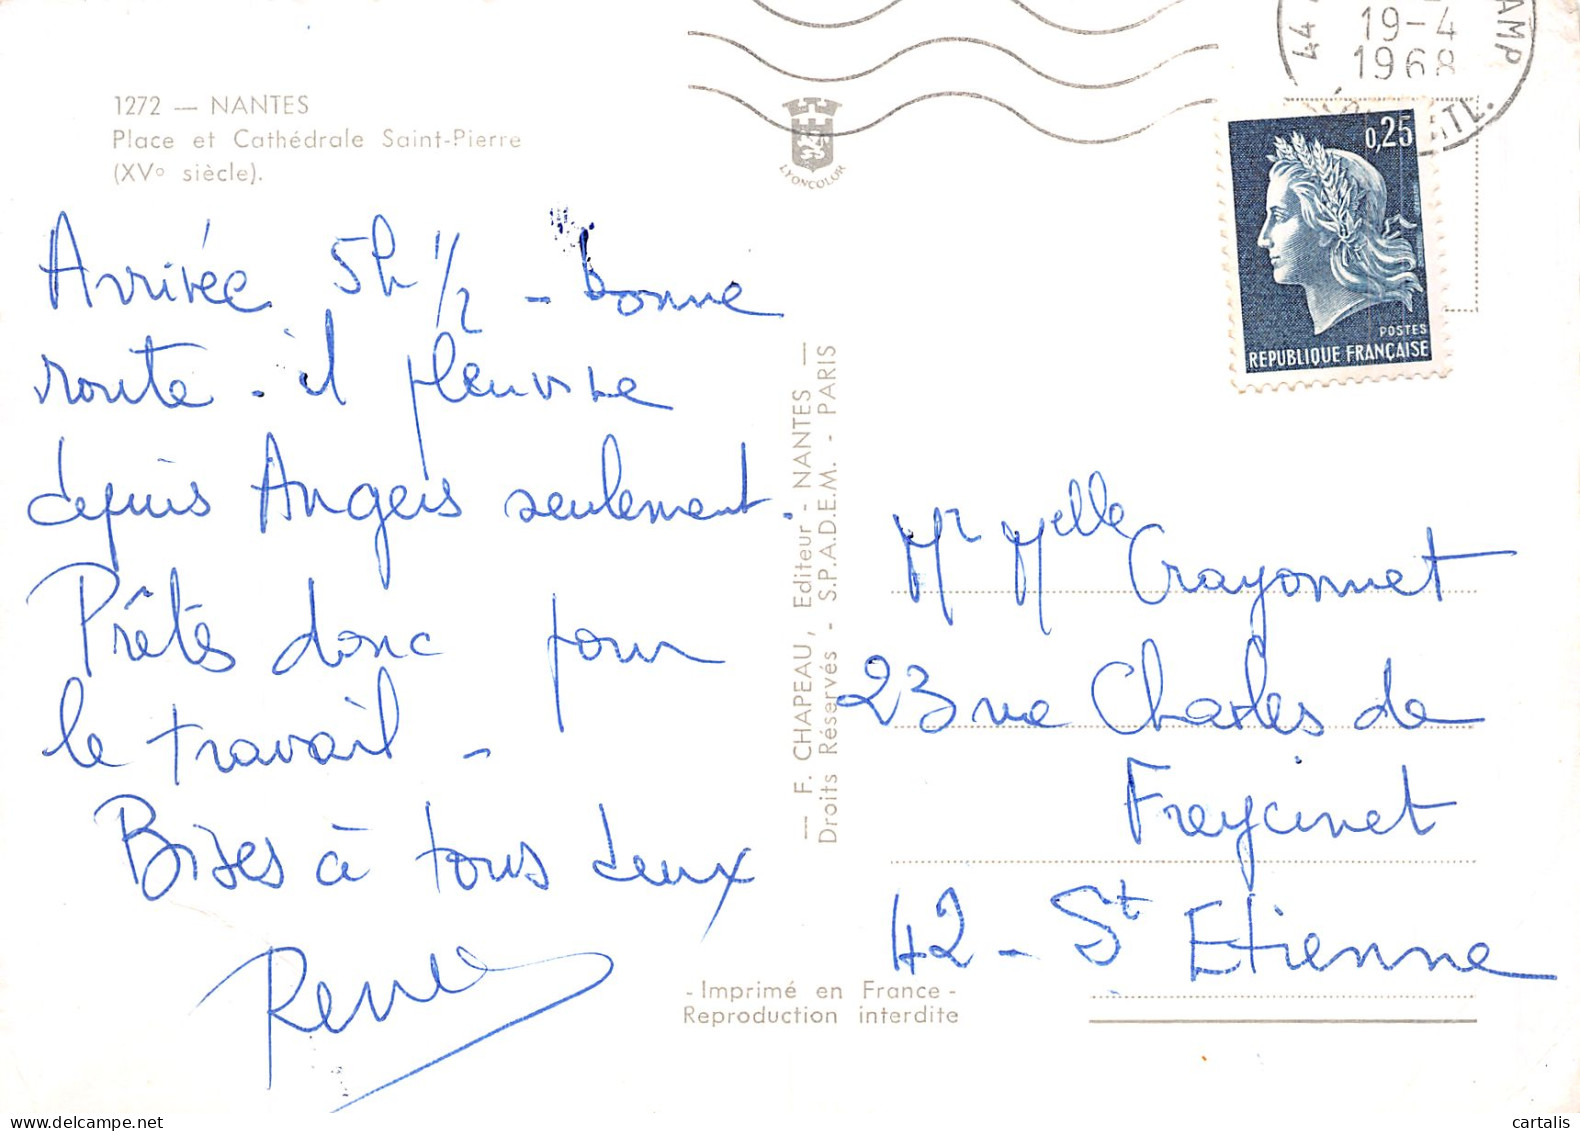 1272 — NANTES
Place et Cathédrale Saint-Pierre
(XVº siècle).
Arrivée 5h 1/2 - bonne
route. il pleuvine
depuis Angers seulement.
Prêtes donc pour
le travail -
Bises à tous deux
Renée
LYONCOLOR
— F. CHAPEAU, Editeur - NANTES —
Droits Réservés - S.P.A.D.E.M. - PARIS
- Imprimé en France -
Reproduction interdite
44
19-4
1968
0,25
POSTES
REPUBLIQUE FRANÇAISE
Mr Melle Crayonnet
23 rue Charles de
Freycinet
42 - St Etienne
cartalis